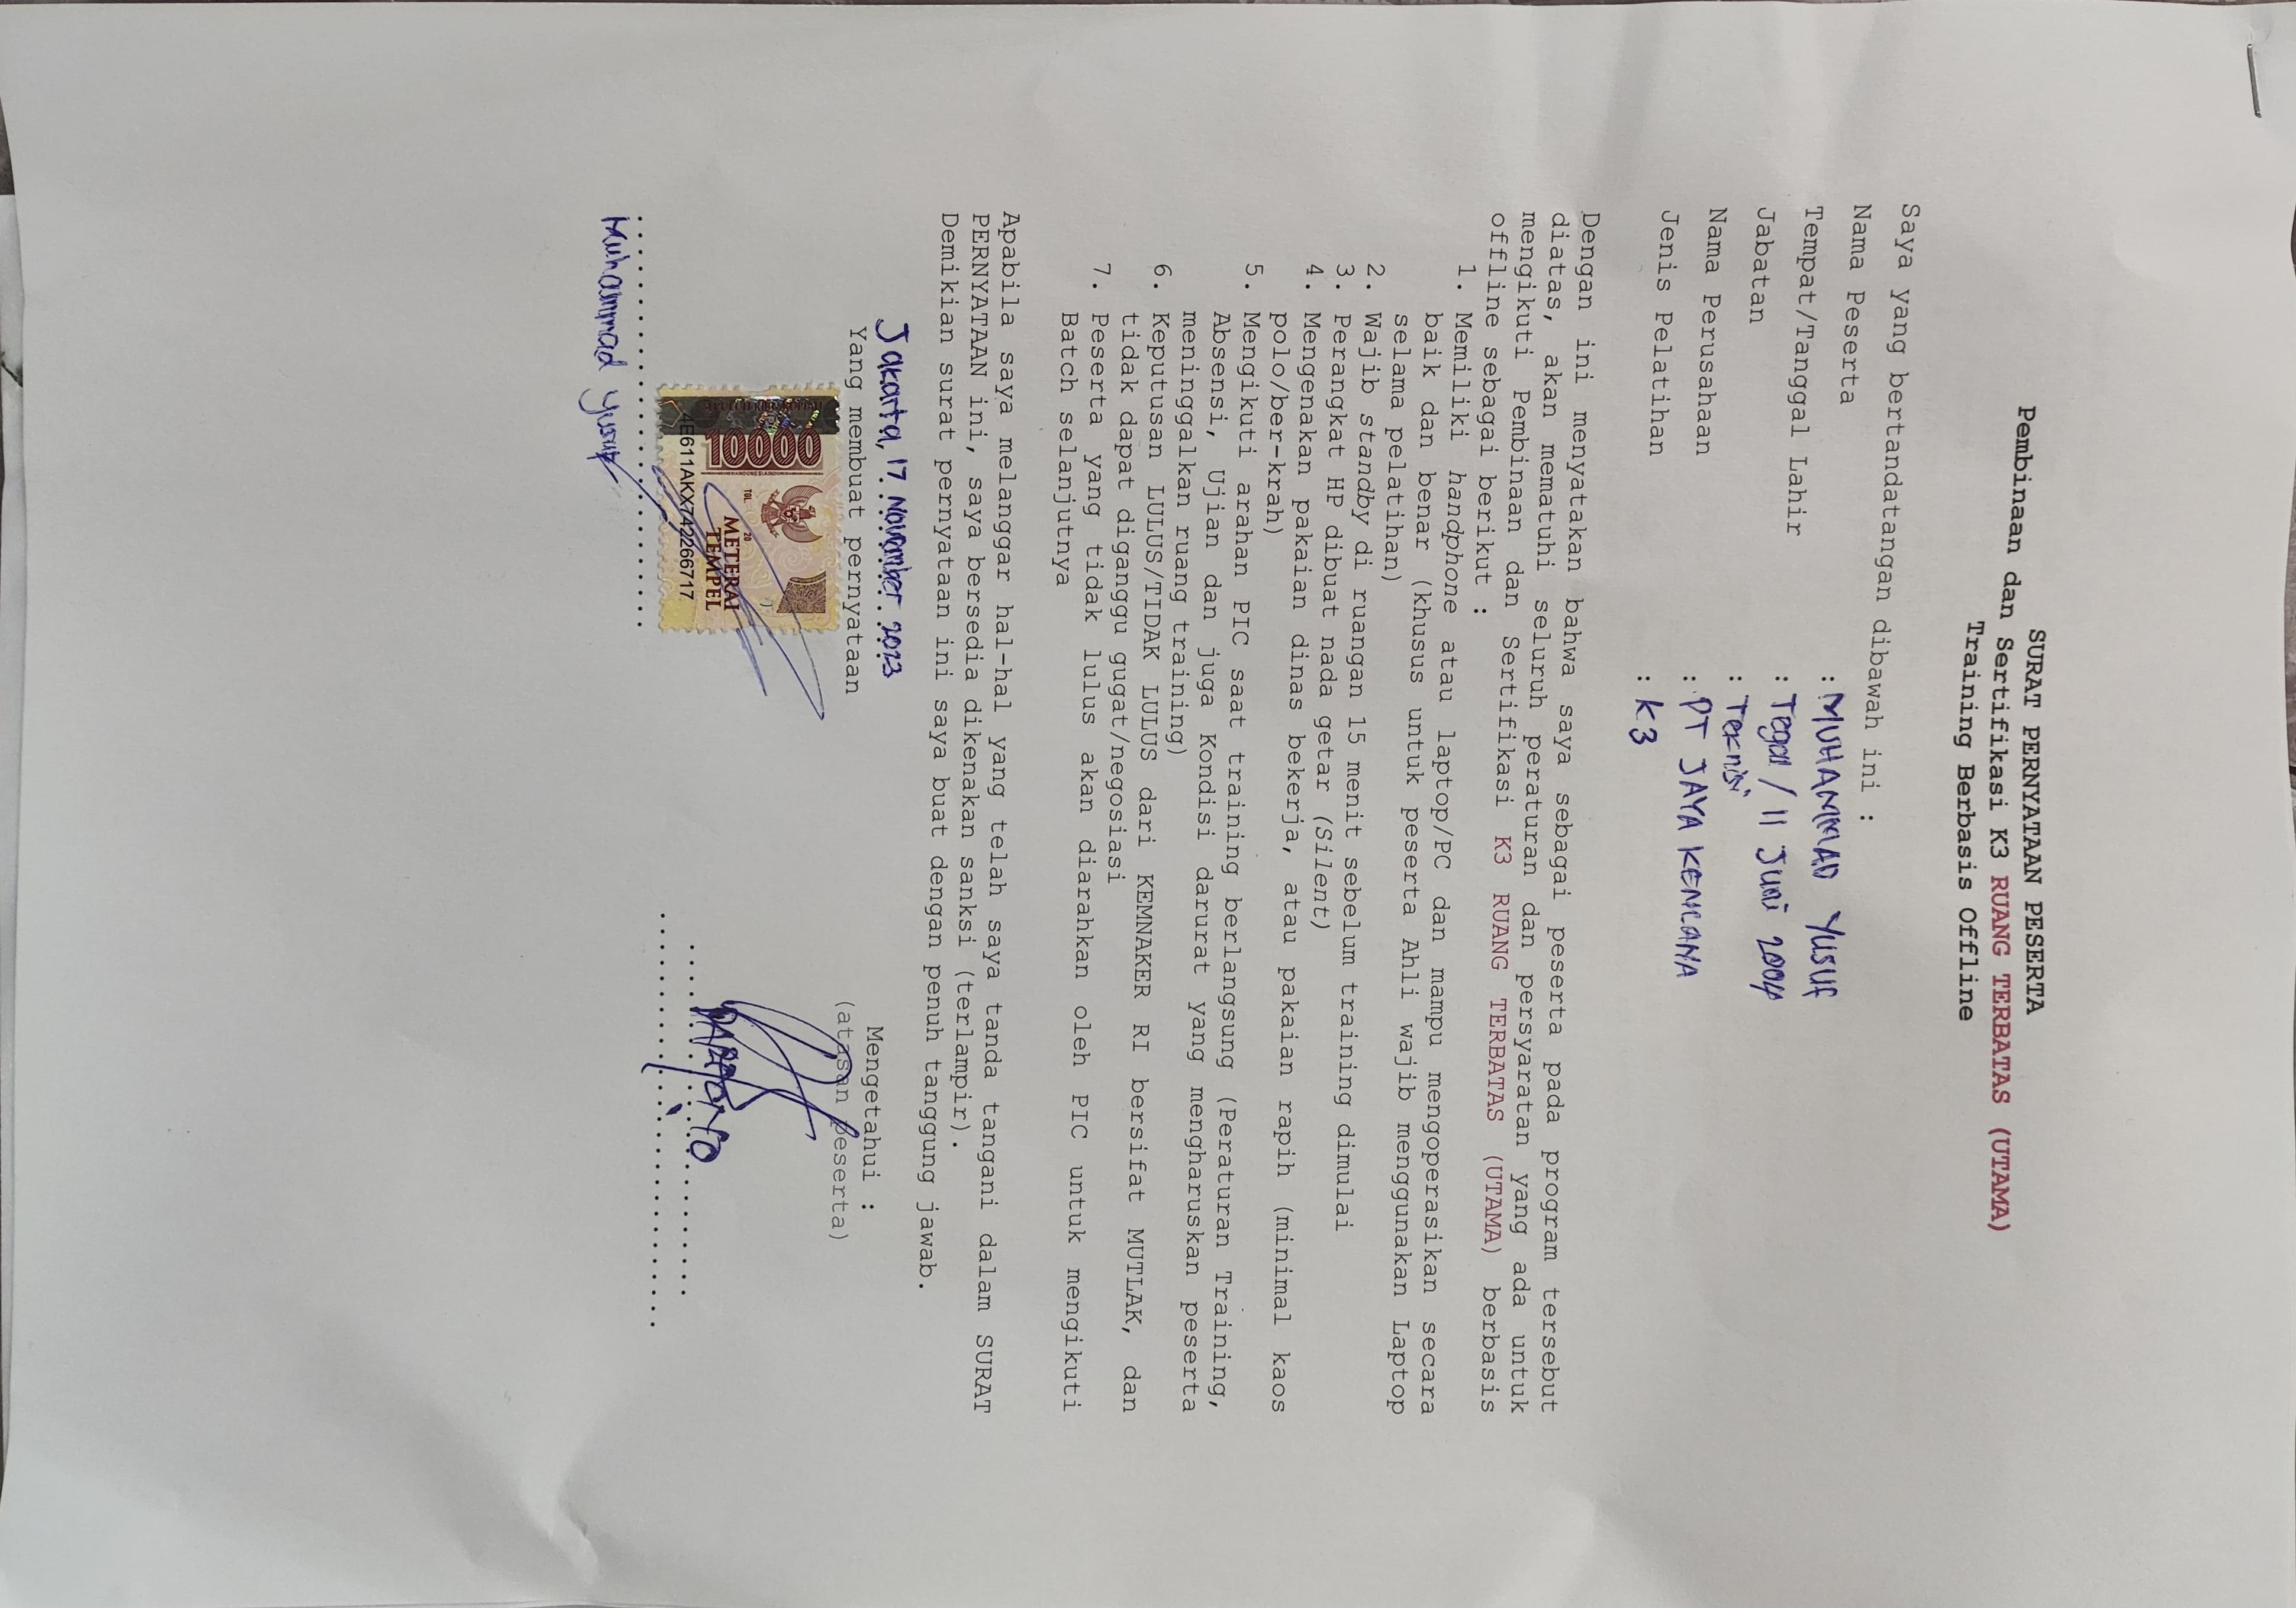 SURAT PERNYATAAN PESERTA
Pembinaan dan Sertifikasi K3 RUANG TERBATAS (UTAMA)
Training Berbasis Offline
Saya yang bertandatangan dibawah ini :
Nama Peserta : MUHAMMAD YUSUF
Tempat/Tanggal Lahir : Tegal / 11 Juni 2004
Jabatan : Teknisi
Nama Perusahaan : PT JAYA KENCANA
Jenis Pelatihan : K3
Dengan ini menyatakan bahwa saya sebagai peserta pada program tersebut
diatas, akan mematuhi seluruh peraturan dan persyaratan yang ada untuk
mengikuti Pembinaan dan Sertifikasi K3 RUANG TERBATAS (UTAMA) berbasis
offline sebagai berikut :
1. Memiliki handphone atau laptop/PC dan mampu mengoperasikan secara
baik dan benar (khusus untuk peserta Ahli wajib menggunakan Laptop
selama pelatihan)
2. Wajib standby di ruangan 15 menit sebelum training dimulai
3. Perangkat HP dibuat nada getar (Silent)
4. Mengenakan pakaian dinas bekerja, atau pakaian rapih (minimal kaos
polo/ber-krah)
5. Mengikuti arahan PIC saat training berlangsung (Peraturan Training,
Absensi, Ujian dan juga Kondisi darurat yang mengharuskan peserta
meninggalkan ruang training)
6. Keputusan LULUS/TIDAK LULUS dari KEMNAKER RI bersifat MUTLAK, dan
tidak dapat diganggu gugat/negosiasi
7. Peserta yang tidak lulus akan diarahkan oleh PIC untuk mengikuti
Batch selanjutnya
Apabila saya melanggar hal-hal yang telah saya tanda tangani dalam SURAT
PERNYATAAN ini, saya bersedia dikenakan sanksi (terlampir).
Demikian surat pernyataan ini saya buat dengan penuh tanggung jawab.
Jakarta, 17 November 2023
Yang membuat pernyataan
Mengetahui :
(atasan peserta)
10000
TGL. 20
METERAI
TEMPEL
4E611AKX742266717
Muhammad Yusuf